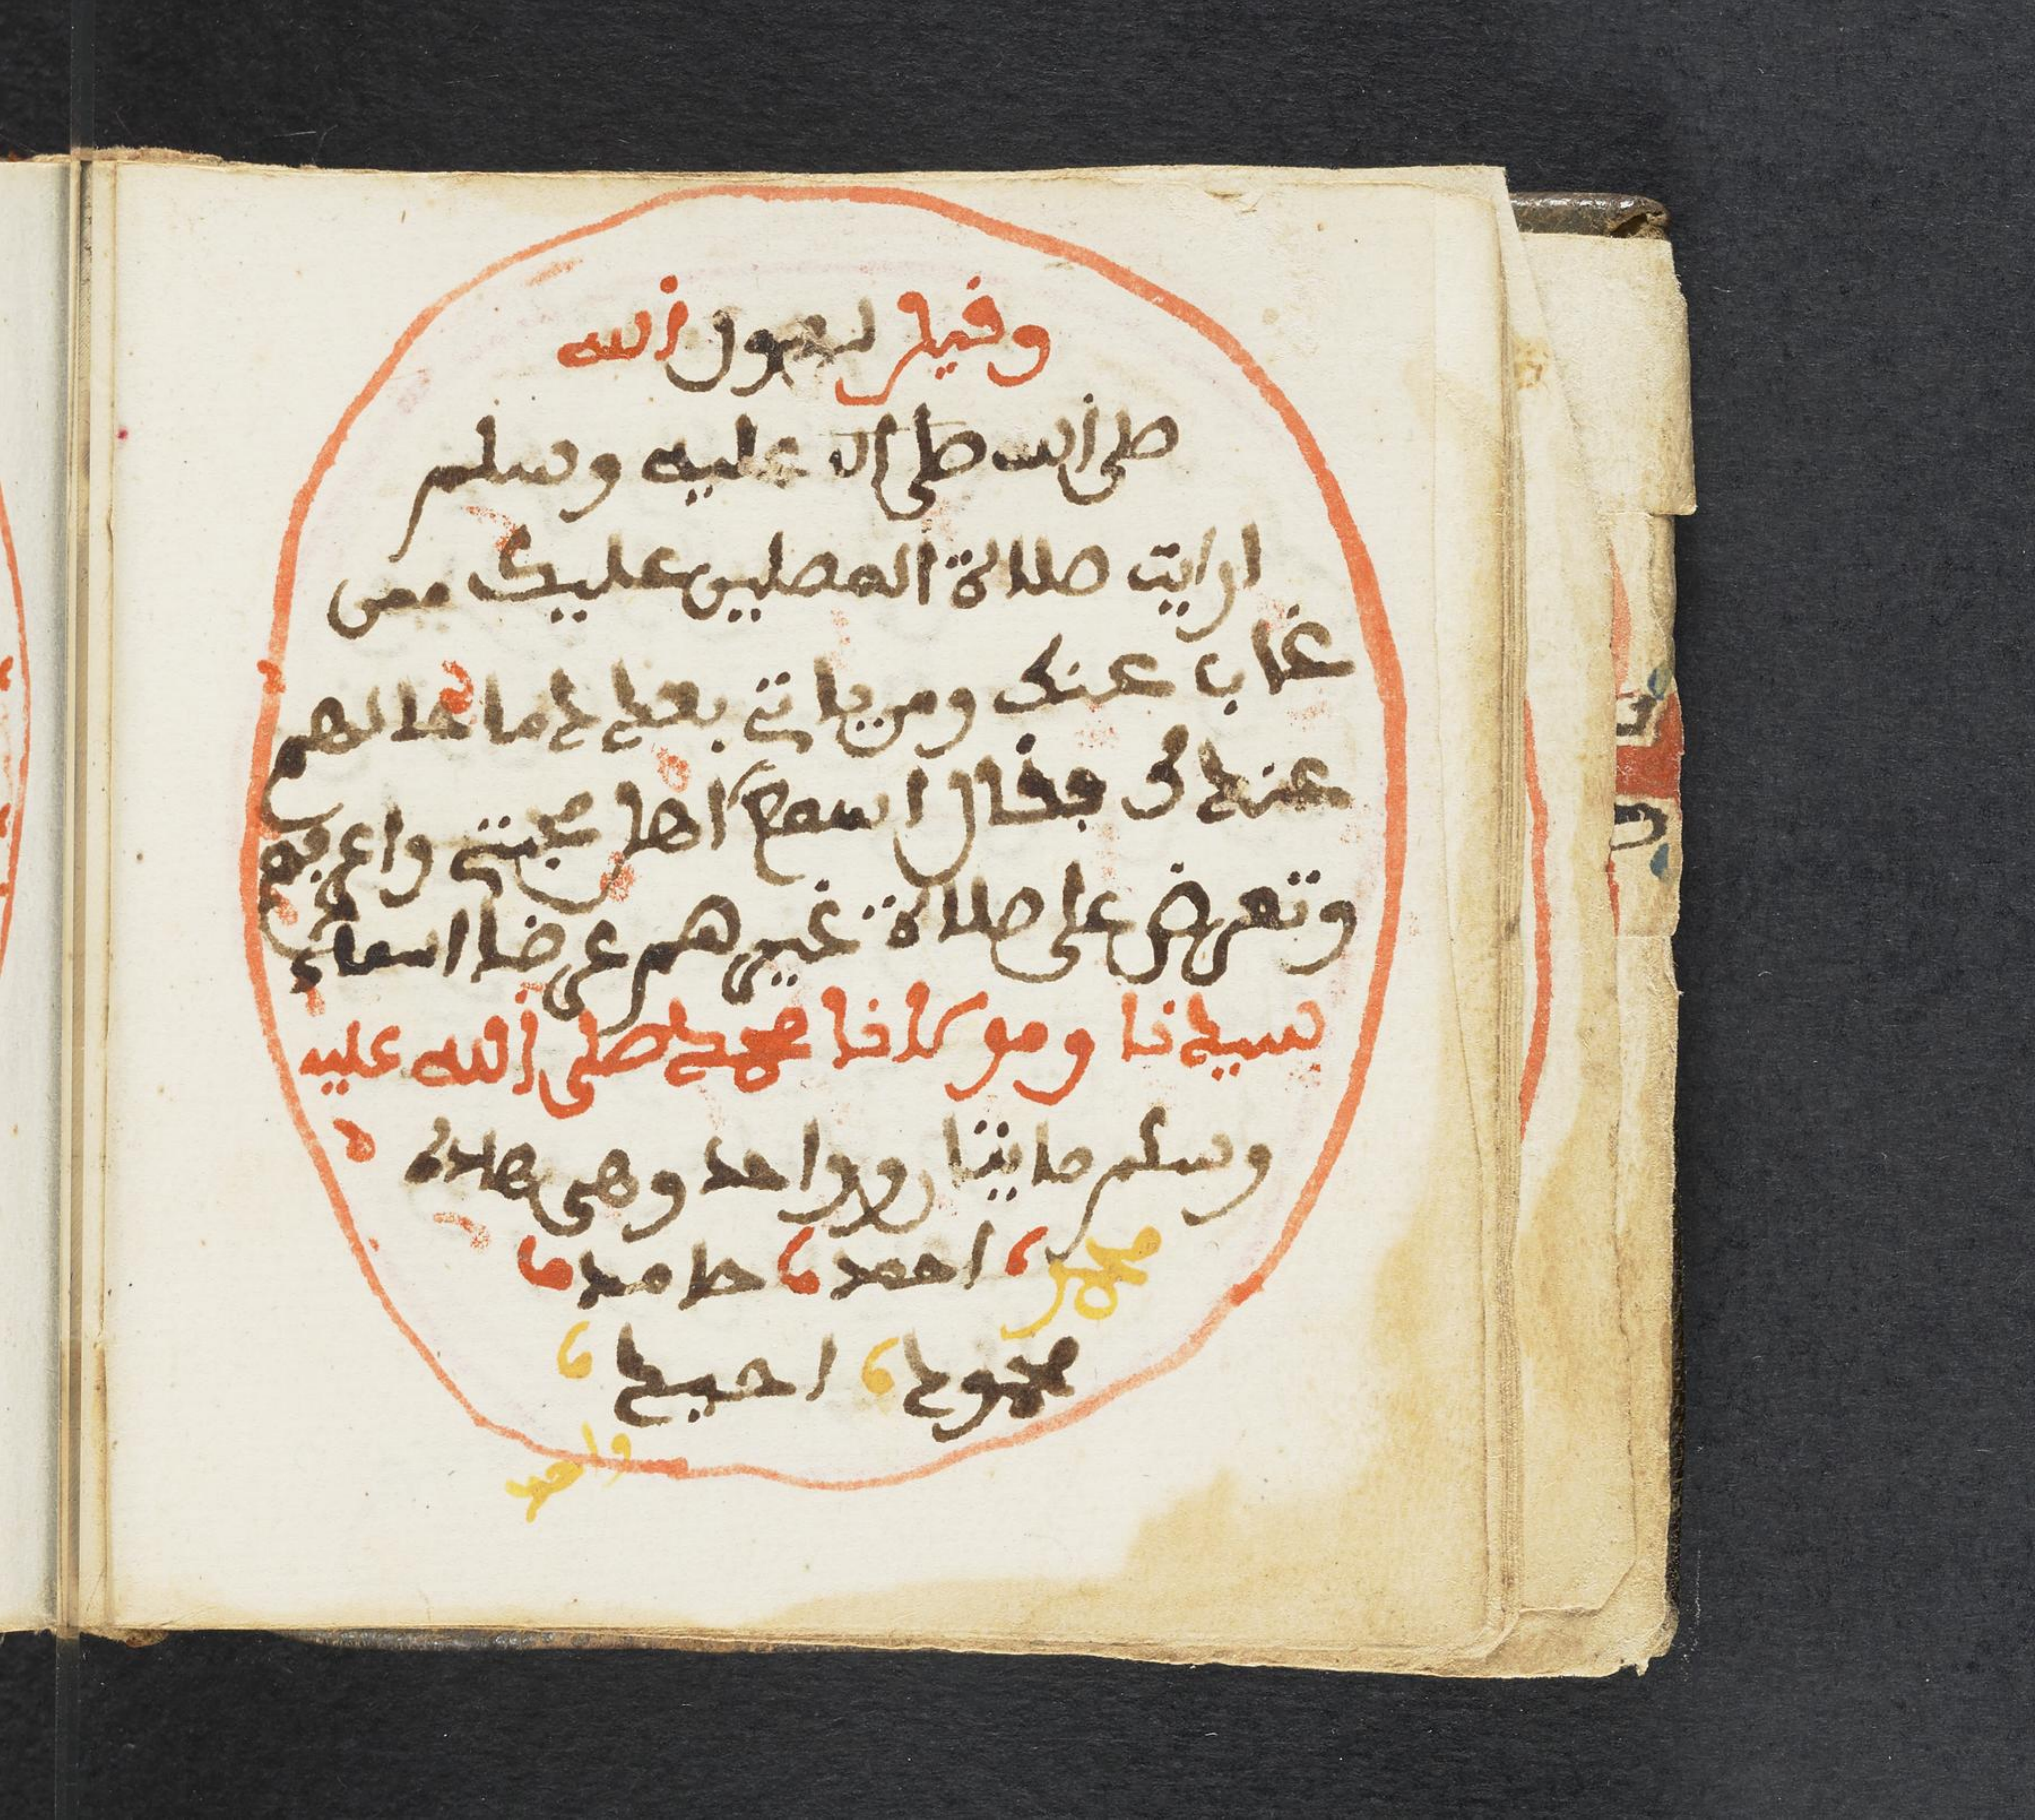 وقيل لرسول الله
صلى الله صلى الله عليه وسلم
ارايت صلاة المصلين عليك ممن
غاب عنك ومن ياتي بعدك ما حالهم
عندك فقال اسمع اهل محبتي واعرفهم
وتعرض علي صلاة غيرهم عرضا اسماء
سيدنا ومولانا محمد صلى الله عليه
وسلم مايتا وواحد وهي هاذه
محمد احمد حامد
محمود احيد
واحيد